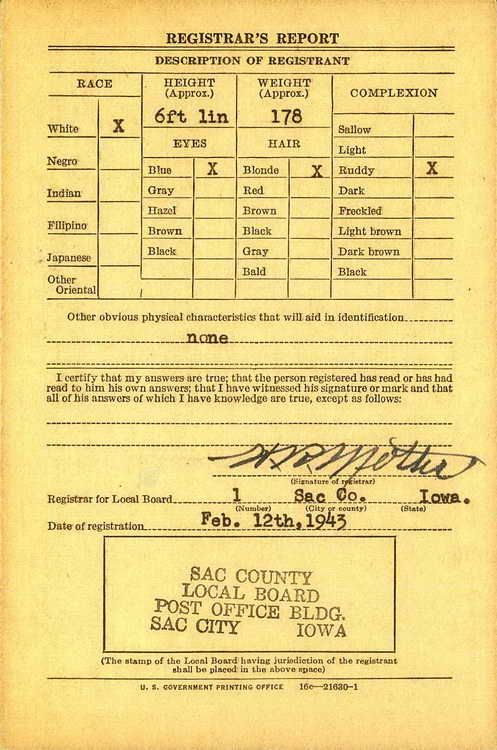 REGISTRAR'S REPORT
DESCRIPTION OF REGISTRANT
RACE
HEIGHT (Approx.)
WEIGHT (Approx.)
COMPLEXION
6ft 1in
178
White X
Sallow
EYES
HAIR
Light
Negro
Blue X
Blonde X
Ruddy X
Indian
Gray
Red
Dark
Hazel
Brown
Freckled
Filipino
Brown
Black
Light brown
Japanese
Black
Gray
Dark brown
Other Oriental
Bald
Black
Other obvious physical characteristics that will aid in identification
none
I certify that my answers are true; that the person registered has read or has had
read to him his own answers; that I have witnessed his signature or mark and that
all of his answers of which I have knowledge are true, except as follows:
(Signature of registrar)
Registrar for Local Board 1 Sac Co. Iowa.
(Number) (City or county) (State)
Date of registration Feb. 12th, 1943
SAC COUNTY
LOCAL BOARD
POST OFFICE BLDG.
SAC CITY IOWA
(The stamp of the Local Board having jurisdiction of the registrant
shall be placed in the above space)
U. S. GOVERNMENT PRINTING OFFICE 16c—21630-1